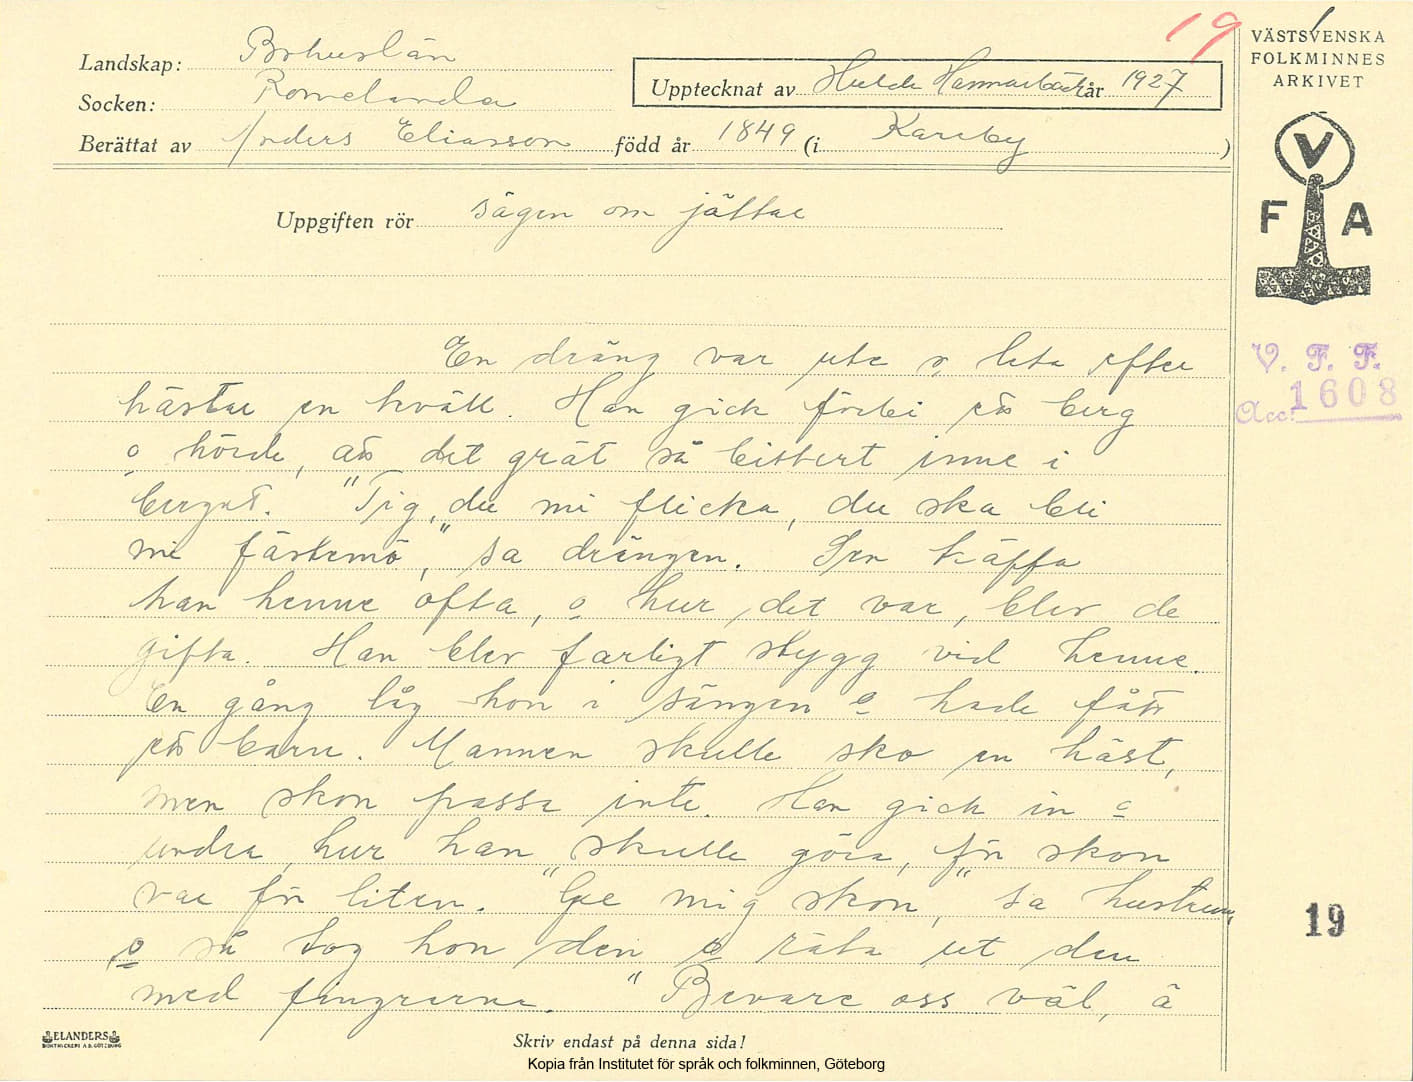 19
Landskap: Bohuslän
Socken: Romelanda
Upptecknat av Hulda Hammarbäck år 1927
Berättat av Anders Eliasson född år 1849 (i Kareby )
VÄSTSVENSKA
FOLKMINNES
ARKIVET
V
F A
Uppgiften rör sägen om jättar
V. F. F.
Acc: 1608
En dräng var ute o leta efter
hästar en kväll. Han gick förbi ett berg
o hörde, att det grät så bittert inne i
berget. "Tig, du mi flicka, du ska bli
mi fästemö," sa drängen. Sen träffa
han henne ofta, o hur det var, blev de
gifta. Han blev farligt skygg vid henne.
En gång låg hon i sängen o hade fått
ett barn. Mannen skulle sko en häst,
men skon passa inte. Han gick in o
undra, hur han skulle göra, för skon
var för liten. "Ge mig skon", sa hustrun,
o så tog hon den o räta ut den
med fingrarna. "Bevare oss väl, ä
19
ELANDERS
BOKTRYCKERI A.B. GÖTEBORG
Skriv endast på denna sida!
Kopia från Institutet för språk och folkminnen, Göteborg